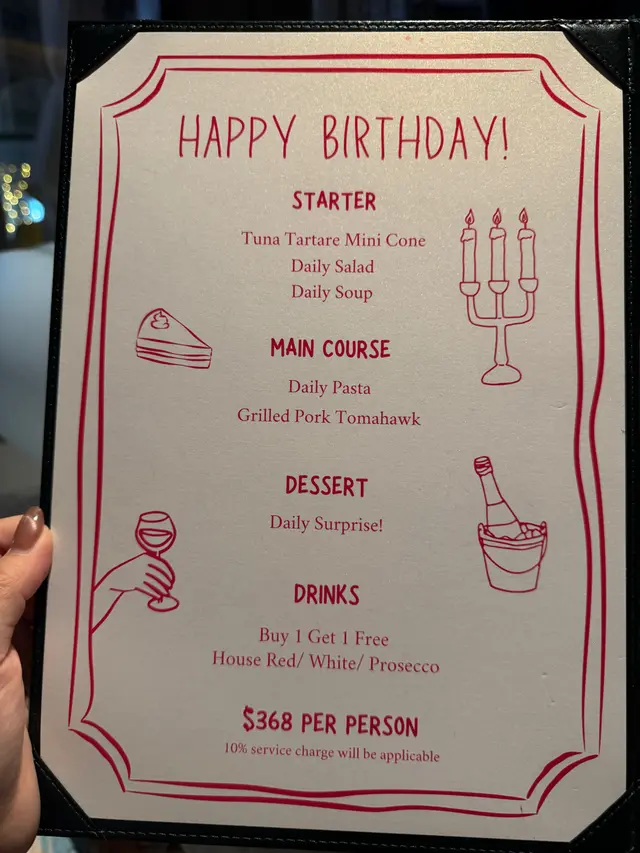 HAPPY BIRTHDAY!
STARTER
Tuna Tartare Mini Cone
Daily Salad
Daily Soup
MAIN COURSE
Daily Pasta
Grilled Pork Tomahawk
DESSERT
Daily Surprise!
DRINKS
Buy 1 Get 1 Free
House Red/ White/ Prosecco
$368 PER PERSON
10% service charge will be applicable